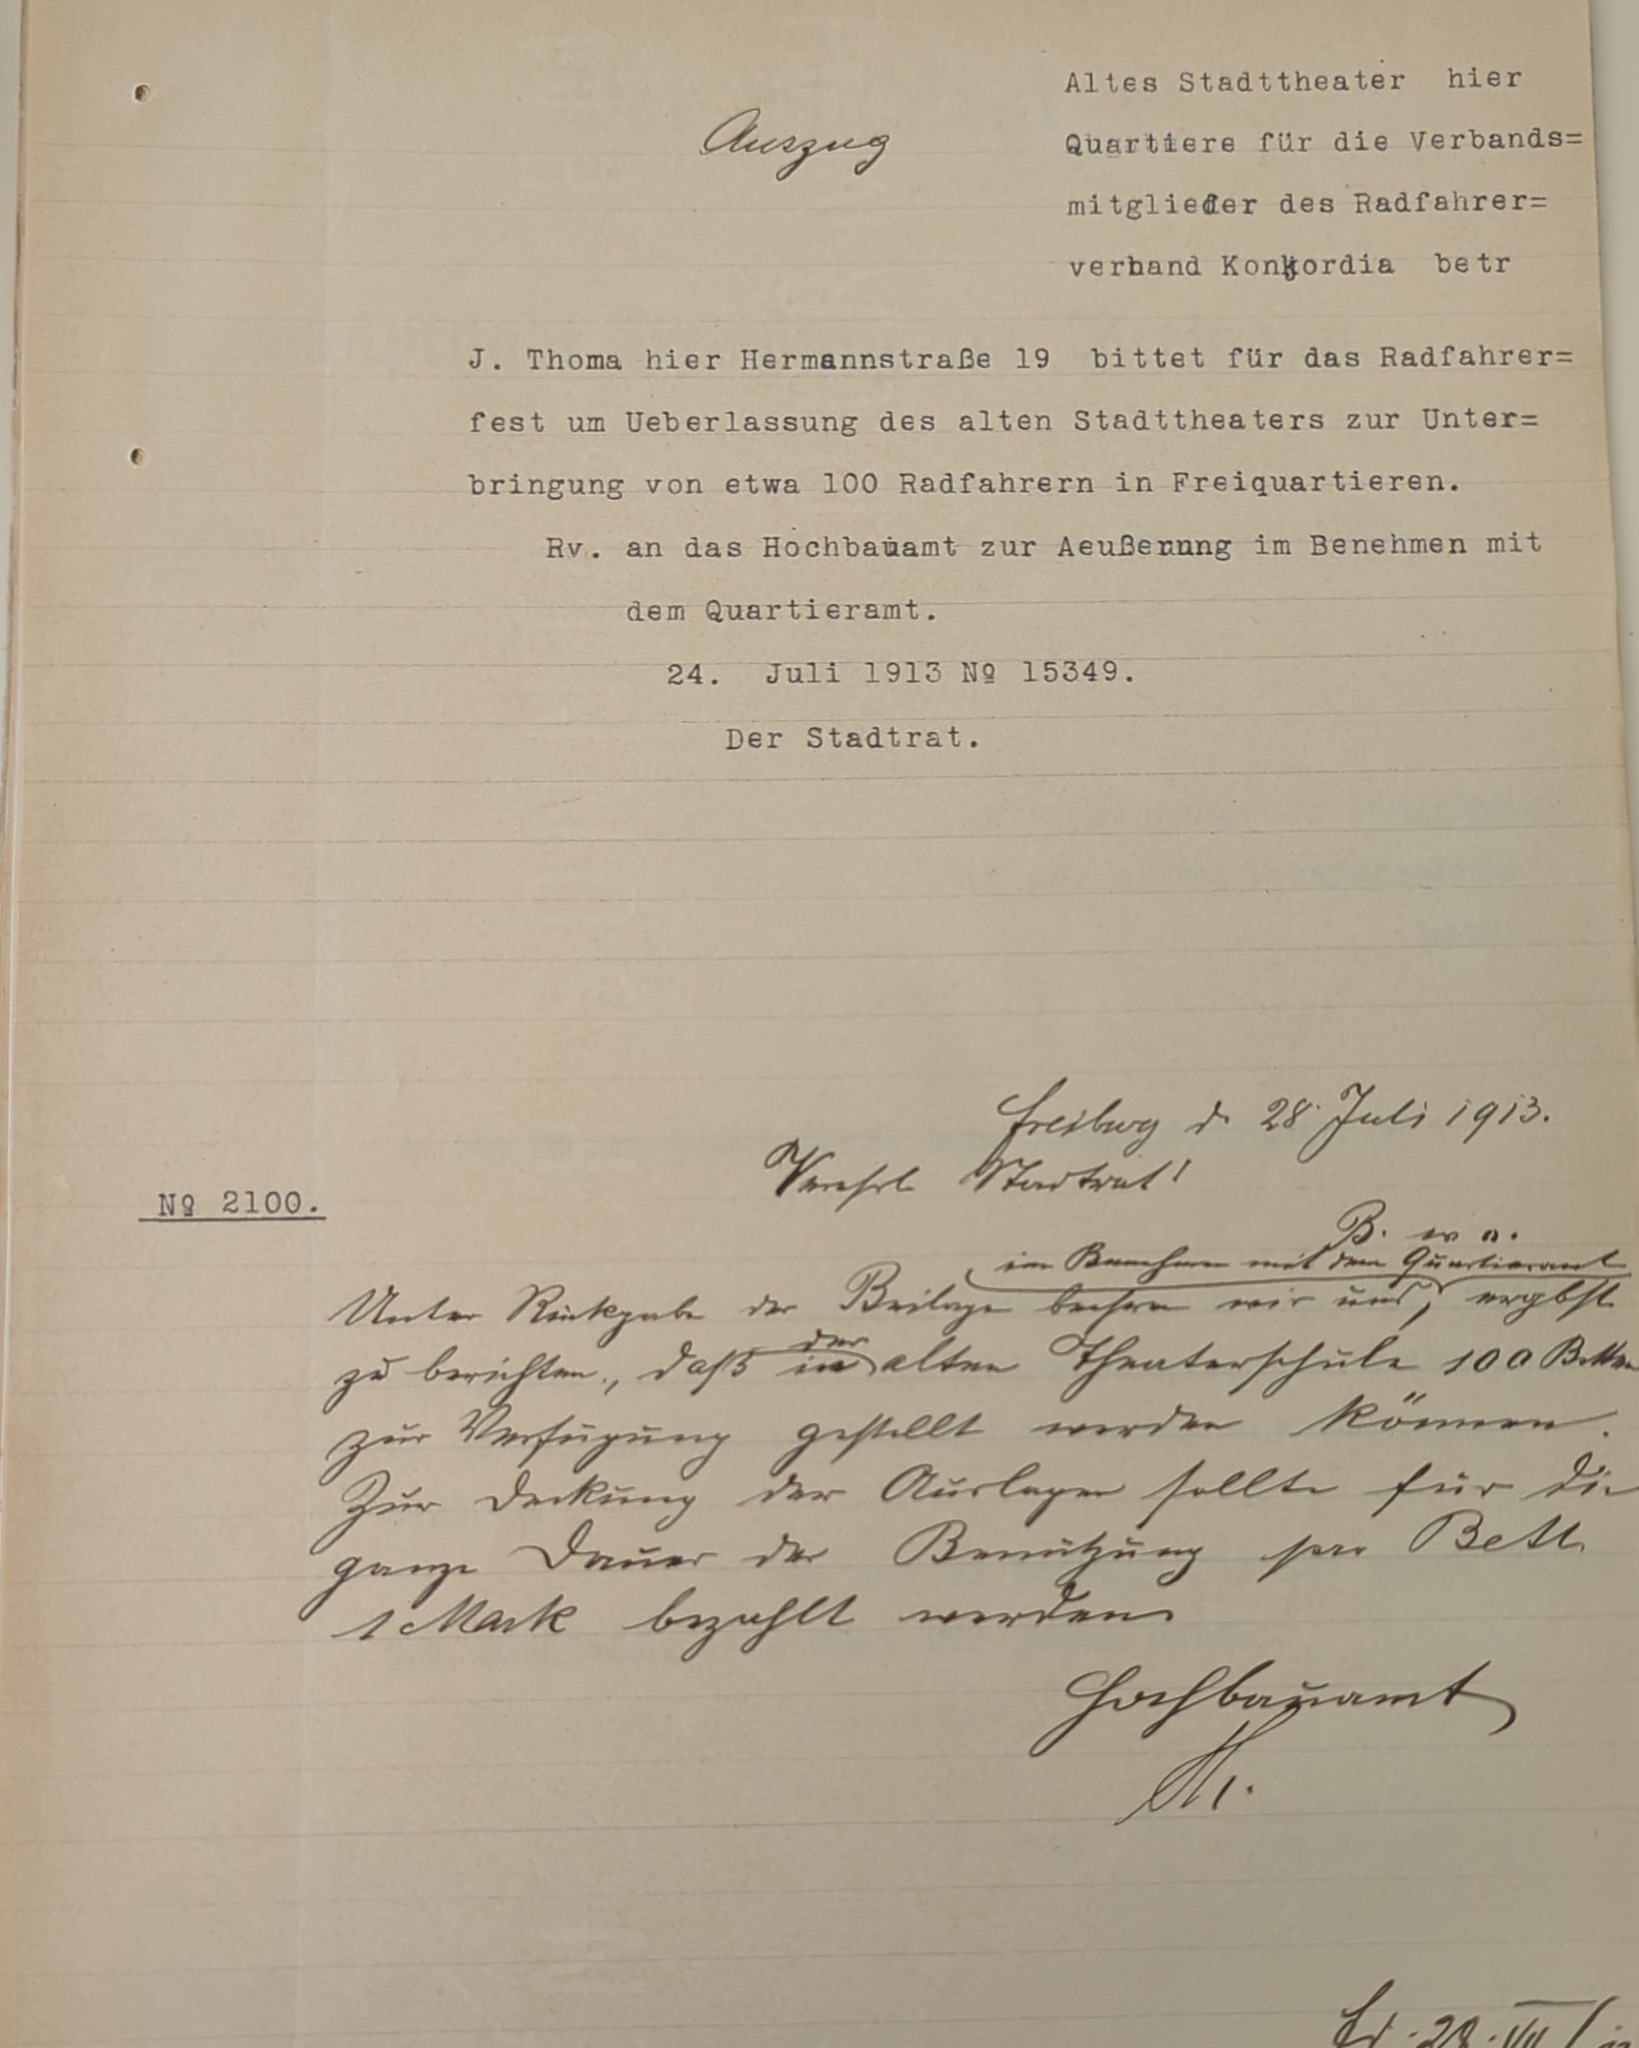 Altes Stadttheater hier
Auszug
Quartiere für die Verbands=
mitglieder des Radfahrer=
verband Konkordia betr
J. Thoma hier Hermannstraße 19 bittet für das Radfahrer=
fest um Ueberlassung des alten Stadttheaters zur Unter=
bringung von etwa 100 Radfahrern in Freiquartieren.
Rv. an das Hochbauamt zur Aeußerung im Benehmen mit
dem Quartieramt.
24. Juli 1913 № 15349.
Der Stadtrat.
Freiburg d. 28. Juli 1913.
Verehrl Stadtrat!
№ 2100.
B. w. o.
im Benehmen mit dem Quartieramt
Unter Rückgabe der Beilage beehren wir uns, ergbst.
der
zu berichten, daß in alten Theaterschule 100 Betten
zur Verfügung gestellt werden können.
Zur Deckung der Auslagen sollte für die
ganze Dauer der Benützung pro Bett
1 Mark bezahlt werden.
Hochbauamt
28. VII